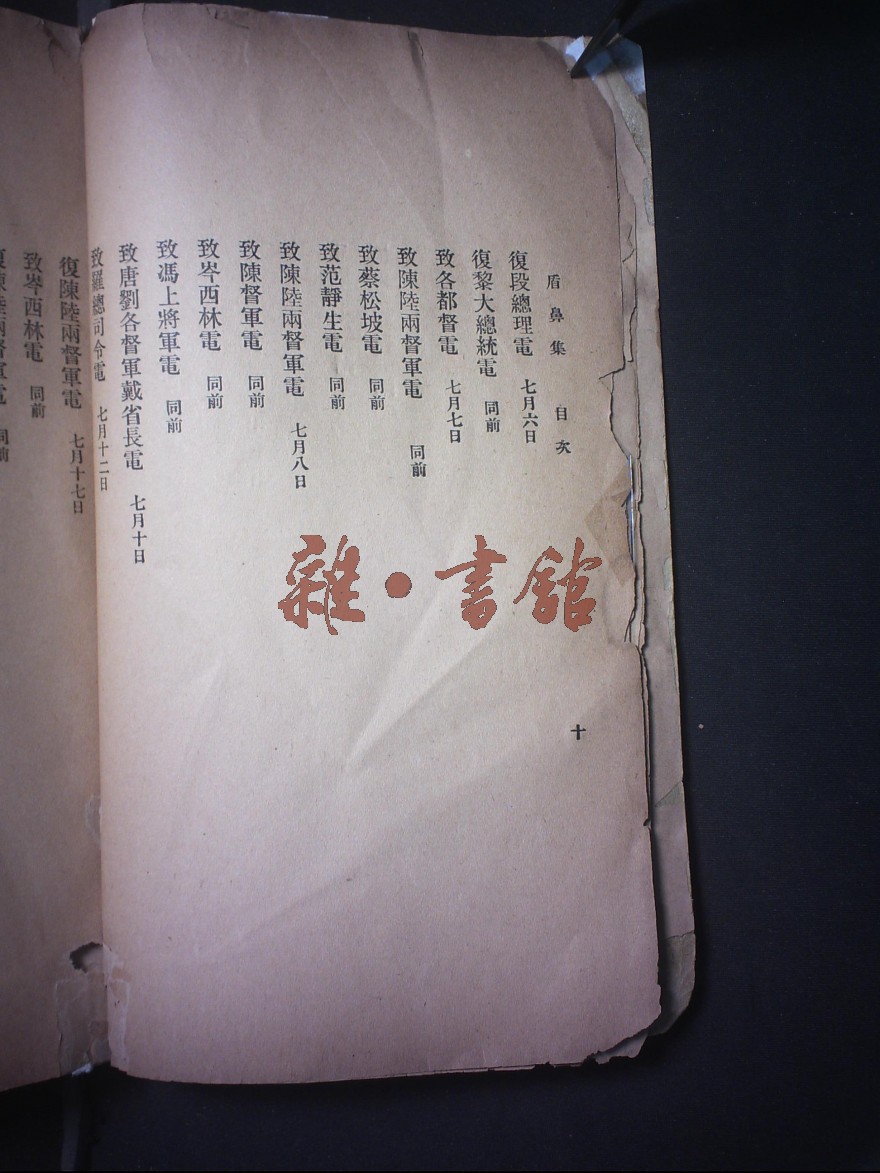 盾鼻集 目次
復段總理電 七月六日
復黎大總統電 同前
致各都督電 七月七日
致陳陸兩督軍電 同前
致蔡松坡電 同前
致范靜生電 同前
致陳陸兩督軍電 七月八日
致陳督軍電 同前
致岑西林電 同前
致馮上將軍電 同前
致唐劉各督軍戴省長電 七月十日
十
致羅總司令電 七月十二日
復陳陸兩督軍電 七月十七日
致岑西林電 同前
復陳陸兩督軍電 同前
雜·書館